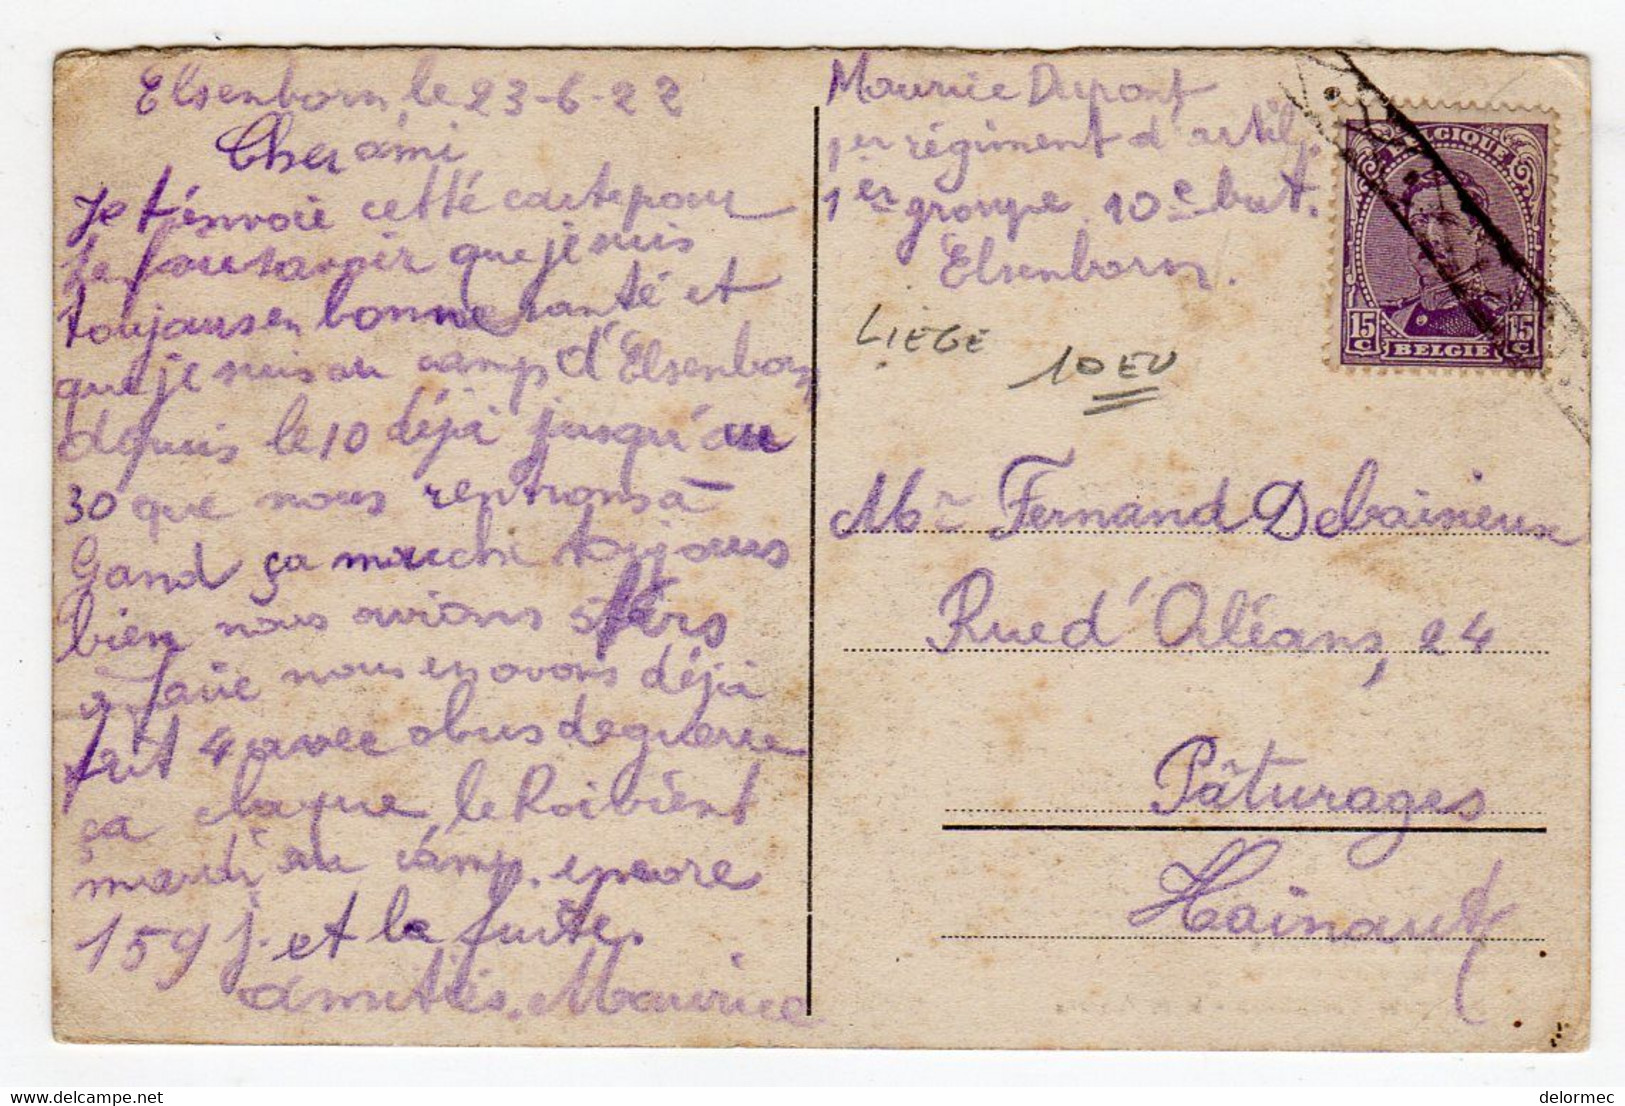 Elsenborn le 23-6-22
Cher ami
Je t'envoie cette carte pour
te faire savoir que je suis
toujours en bonne santé et
que je suis au camp d'Elsenborn
depuis le 10 déjà jusqu'au
30 que nous rentrons à
Gand ça marche toujours
bien nous avions 5 tirs
a faire nous en avons déjà
fait 4 avec obus de guerre
ça claque, le Roi bient
mardi au camp. encore
159 j. et la fuite,
amitiés. Maurice
Maurice Dupont
1er régiment d'artil.
1er groupe 10e bat.
Elsenborn.
LIEGE
10 EU
BELGIQUE
15 C
BELGIE
15 C
Mr Fernand Debaisieux
Rue d'Orléans, 24
Pâturages
Hainaut
delormec